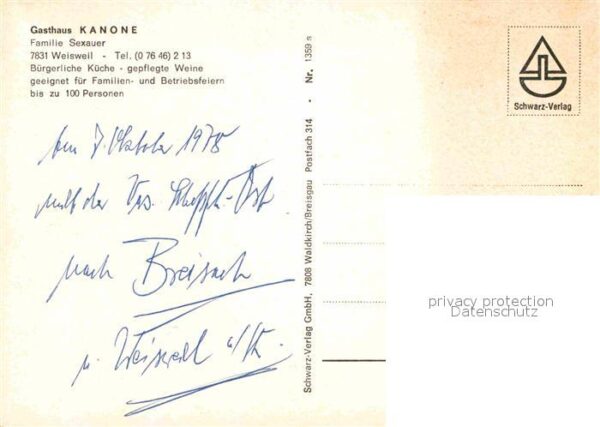 Gasthaus KANONE
Familie Sexauer
7831 Weisweil - Tel. (0 76 46) 2 13
Bürgerliche Küche - gepflegte Weine
geeignet für Familien- und Betriebsfeiern
bis zu 100 Personen
7. Oktober 1978
mit der
nach Breisach
u. Weisweil
Schwarz-Verlag GmbH, 7808 Waldkirch/Breisgau Postfach 314 - Nr. 1359 s
Schwarz-Verlag
privacy protection
Datenschutz